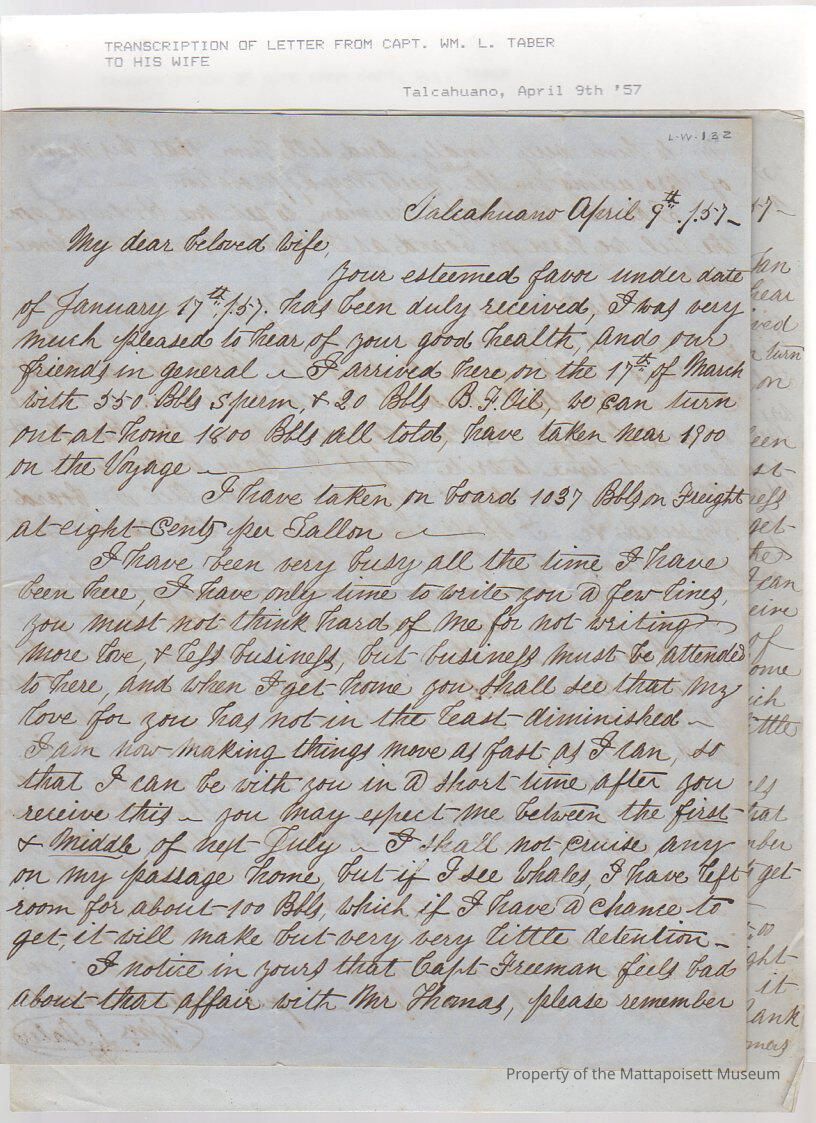 TRANSCRIPTION OF LETTER FROM CAPT. WM. L. TABER
TO HIS WIFE
Talcahuano, April 9th '57
L-W-132
Talcahuano April 9th /57-
My dear beloved wife,
Your esteemed favor under date
of January 17th /57. has been duly received, I was very
much pleased to hear of your good health, and our
friends in general - I arrived here on the 17th of March
with 550 Bbls Sperm, & 20 Bbls B.F. Oil, we can turn
out at home 1800 Bbls all told, have taken near 1900
on the Voyage -
I have taken on board 1037 Bbls on Freight
at eight Cents per Gallon -
I have been very busy all the time I have
been here, I have only time to write you a few lines,
you must not think hard of me for not writing
more love, & less business, but business must be attended
to here, and when I get home you shall see that my
love for you has not in the least diminished -
I am now making things move as fast as I can, so
that I can be with you in a short time after you
receive this - you may expect me between the first
& Middle of next July - I shall not cruise any
on my passage home, but if I see Whales, I have left
room for about 100 Bbls, which if I have a chance to
get, it will make but very very little detention -
I notice in yours that Capt Freeman feels bad
about that affair with Mr Thomas, please remember
Property of the Mattapoisett Museum